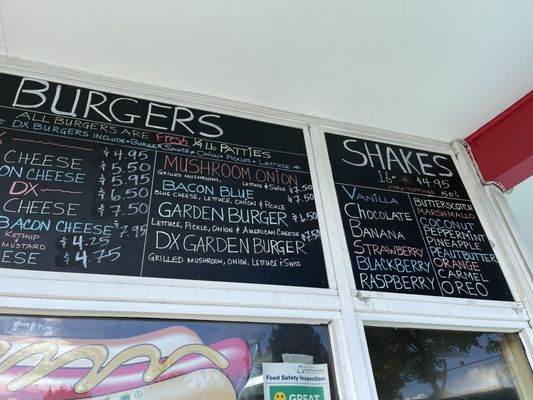 BURGERS
ALL BURGERS ARE Fresh 1/4 lb PATTIES
* DX BURGERS INCLUDE * BURGER SAUCE * ONION * PICKLE * LETTUCE *
$4.95
CHEESE $5.50
ON CHEESE $5.95
DX $6.50
CHEESE $7.50
BACON CHEESE $7.95
KETCHUP MUSTARD $4.25
ESE $4.75
MUSHROOM ONION
GRILLED MUSHROOM, LETTUCE & SWISS $7.50
BACON BLUE
BLUE CHEESE, LETTUCE, ONION & PICKLE $7.50
GARDEN BURGER $6.50
LETTUCE, PICKLE, ONION & AMERICAN CHEESE
DX GARDEN BURGER $7.50
GRILLED MUSHROOM, ONION, LETTUCE & SWISS
SHAKES
16 $4.95
XTRA TOPPINGS 50¢
VANILLA
CHOCOLATE
BANANA
STRAWBERRY
BLACKBERRY
RASPBERRY
BUTTERSCOTCH
MARSHMALLO
COCONUT
PEPPERMINT
PINEAPPLE
PEANUTBUTTER
ORANGE
CARMEL
OREO
Food Safety Inspection
GREAT